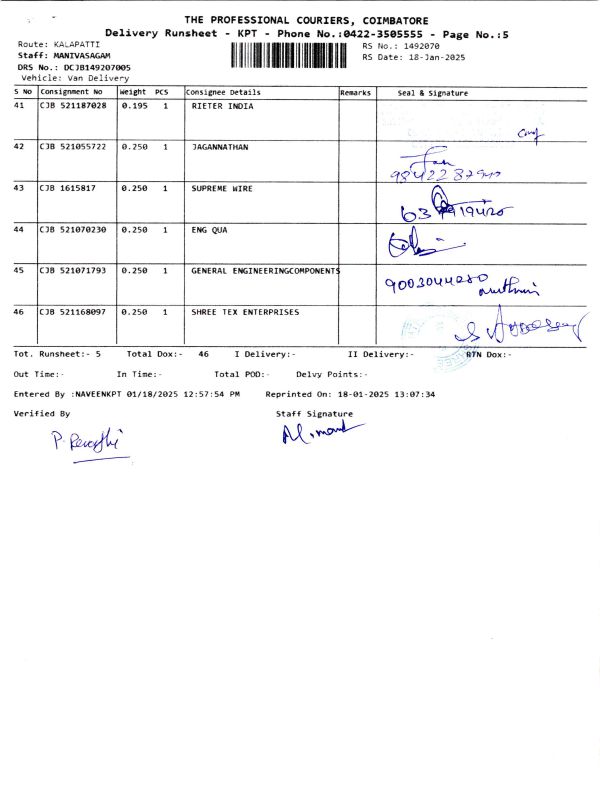 THE PROFESSIONAL COURIERS, COIMBATORE
Delivery Runsheet - KPT - Phone No.:0422-3505555 - Page No.:5
Route: KALAPATTI RS No.: 1492070
Staff: MANIVASAGAM RS Date: 18-Jan-2025
DRS No.: DCJB149207005
Vehicle: Van Delivery
S No Consignment No Weight PCS Consignee Details Remarks Seal & Signature
41 CJB 521187028 0.195 1 RIETER INDIA
42 CJB 521055722 0.250 1 JAGANNATHAN
43 CJB 1615817 0.250 1 SUPREME WIRE
44 CJB 521070230 0.250 1 ENG QUA
45 CJB 521071793 0.250 1 GENERAL ENGINEERINGCOMPONENTS
9003044280
46 CJB 521168097 0.250 1 SHREE TEX ENTERPRISES
Tot. Runsheet:- 5 Total Dox:- 46 I Delivery:- II Delivery:- RTN Dox:-
Out Time:- In Time:- Total POD:- Delvy Points:-
Entered By :NAVEENKPT 01/18/2025 12:57:54 PM Reprinted On: 18-01-2025 13:07:34
Verified By Staff Signature